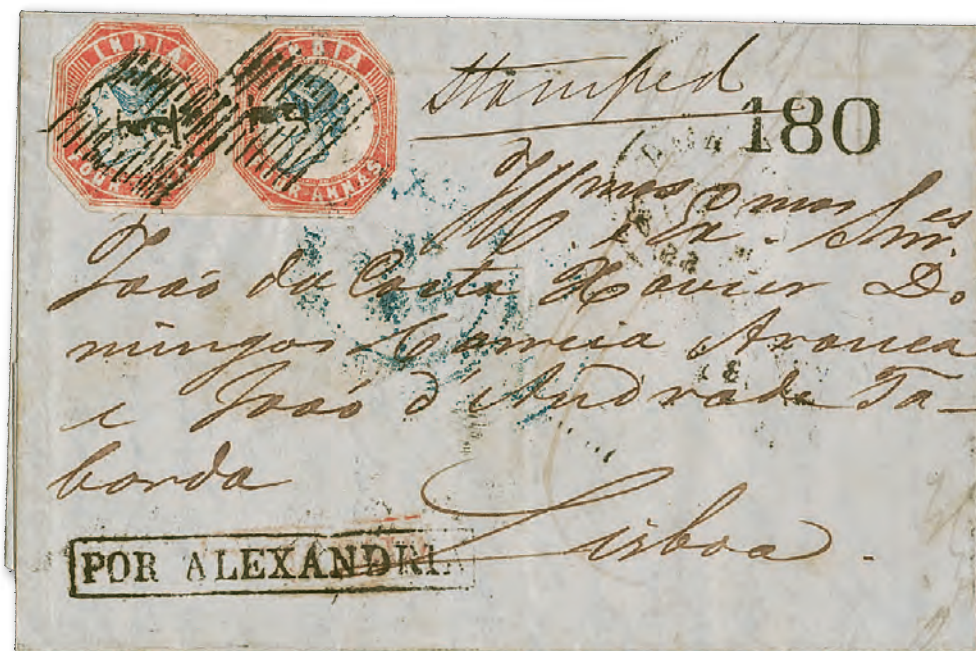 INDIA INDIA
FOUR ANNAS
Stamped
180
Illmos e Exmos Snres
João da Costa Xavier Do-
mingos Correia Arouca
e João d'Andrade Ta-
borda
Lisboa.
POR ALEXANDRIA